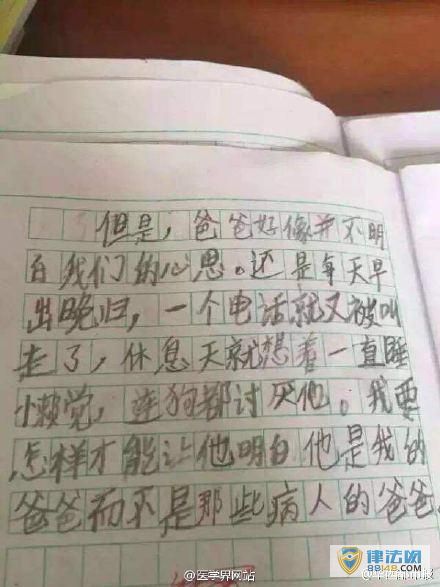 但是，爸爸好像并不明
白我们的心思。还是每天早
出晚归，一个电话就又被叫
走了，休息天就想着一直睡
懒觉，连狗都讨厌他。我要
怎样才能让他明白他是我的
爸爸而不是那些病人的爸爸。
@医学界网站
律法网
88148.com